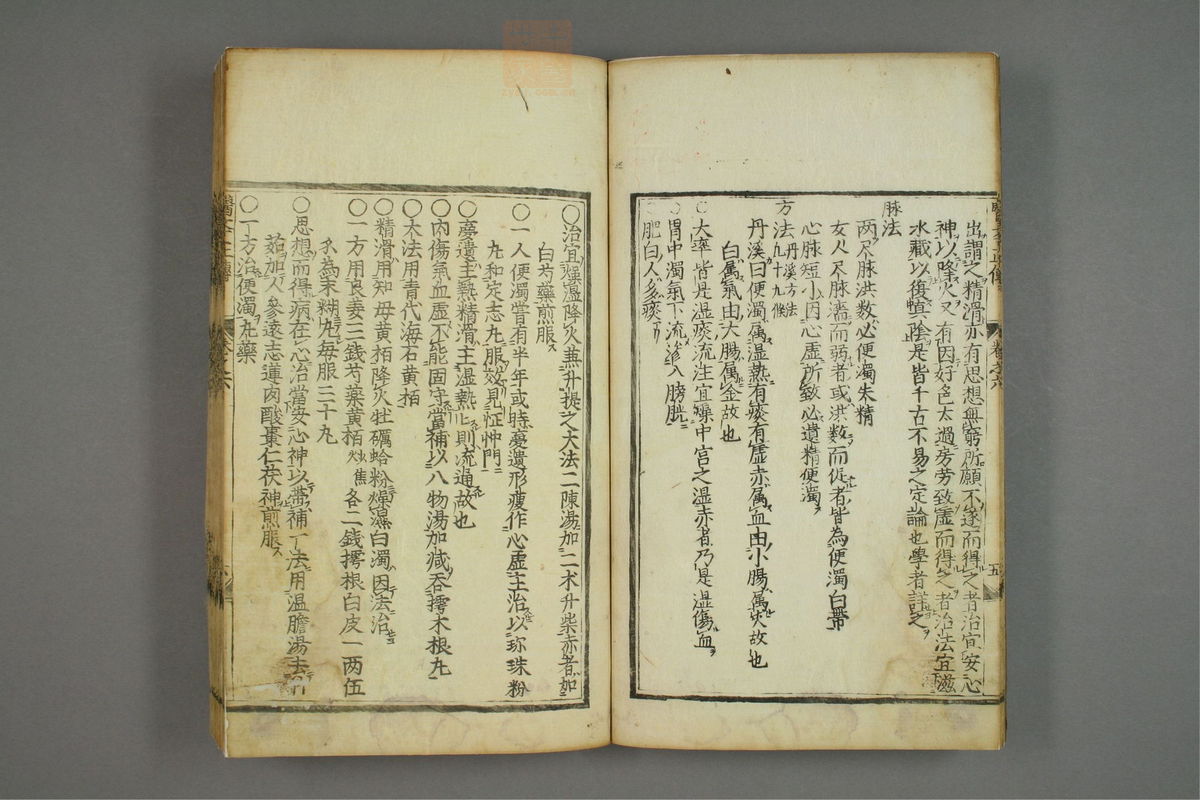 出謂之精滑亦有思想無窮所願不遂而得之者治宜安心
神以降火又有因好色太過房勞致虛而得之者治法宜滋
水藏以復真陰是皆千古不易之定論也學者詳之
脉法
两尺脉洪數必便濁失精
女人尺脉濇而弱者或洪數而促者皆為便濁白帶
心脉短小因心虛所致必遺精便濁
方法丹溪方法九十九條
丹溪曰便濁属湿熱有痰有虛赤属血由小腸属火故也
白属氣由大腸属金故也
大率皆是湿痰流注宜燥中宮之湿赤者乃是湿傷血
胃中濁氣下流滲入膀胱
肥白人多痰
○治宜燥湿降火兼升提之大法二陳湯加二术升柴赤者加
白芍藥煎服
○一人便濁嘗有半年或時夢遺形瘦作心虛主治以珍珠粉
丸和定志丸服效則怔忡門
○夢遺主熱精滑主湿熱則流通故也
○肉傷氣血虛不能固守當補以八物湯加减吞樗木根丸
○大法用青代海石黄栢
○精滑用知母黄栢降火牡礪蛤粉燥濕白濁因法治
○一方用良姜三錢芍藥黄栢各二錢樗根白皮一两伍
為末糊丸每服三十丸
○思想而得病在心治當安心神以帶補一法用温膽湯去
茹加人參遠志蓮肉酸棗仁茯神煎服
○一方治便濁丸藥